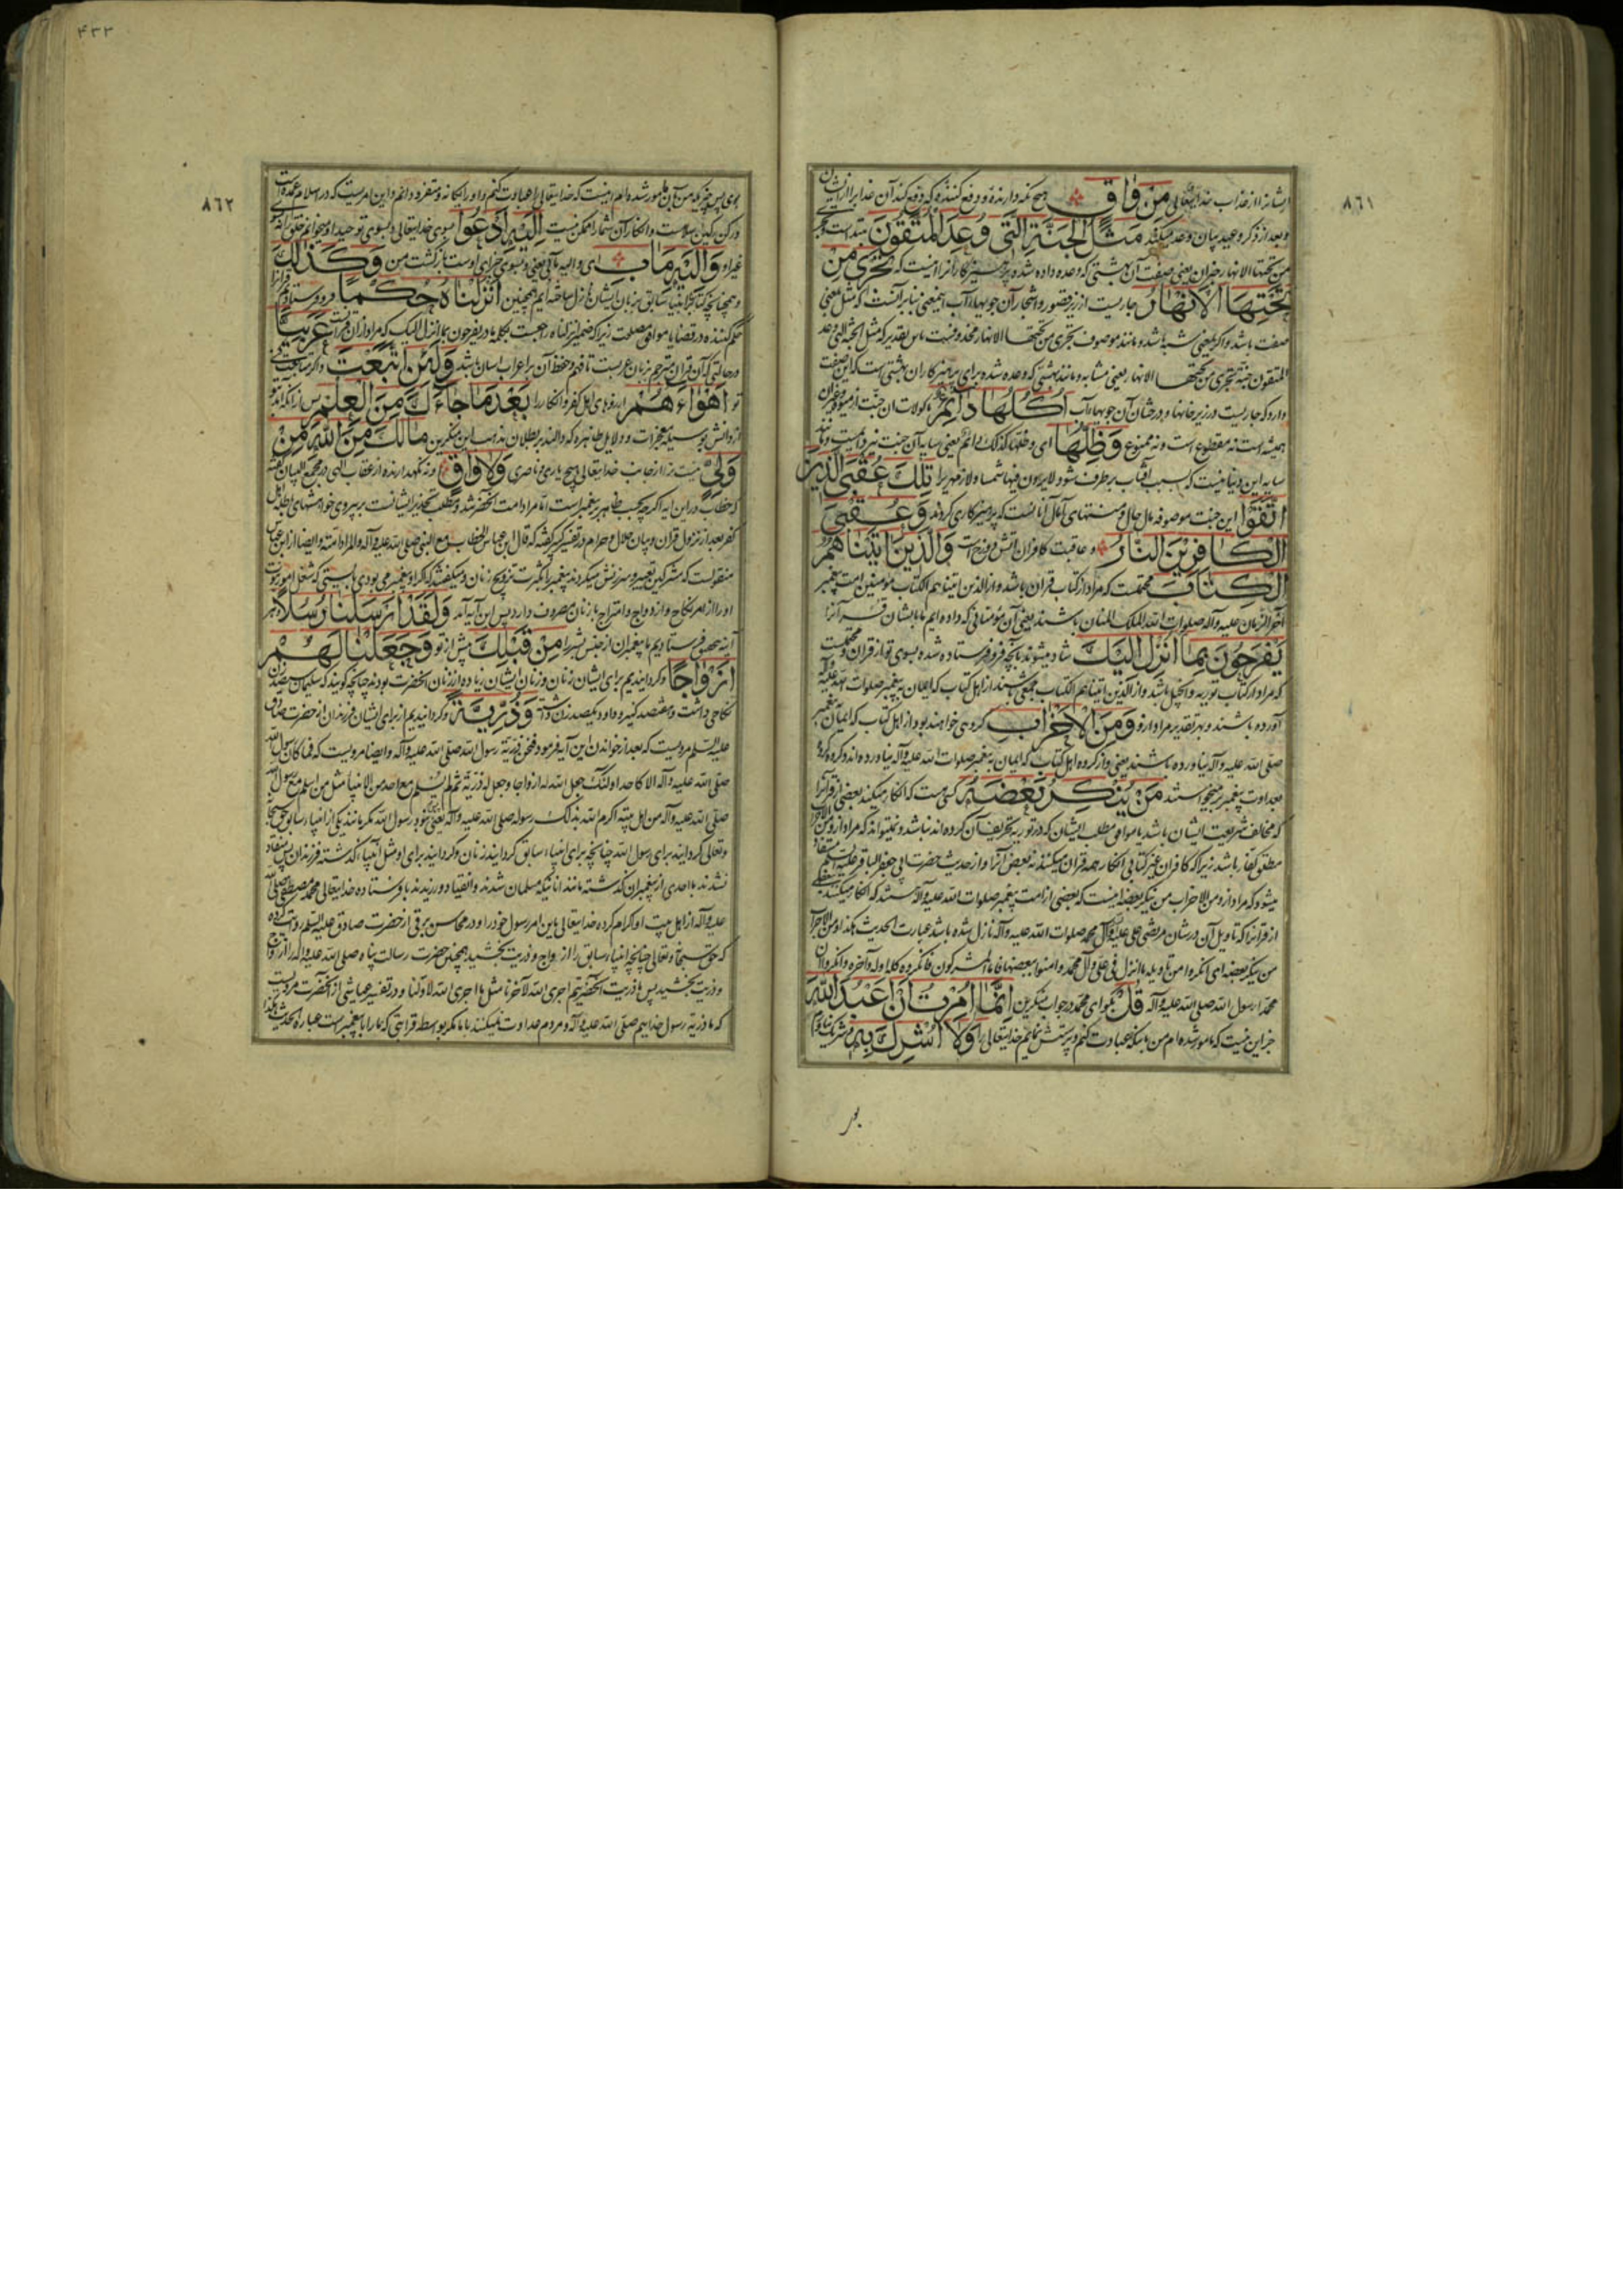 ٨٦١
ایشانرا از عذاب خدایتعالی مِنْ وَاقٍ هیچ نگه دارنده و دفع کننده که دفع کند آن عذاب را از ایشان
و بعد از ذکر وعید بیان وعد میکند مَثَلُ الْجَنَّةِ الَّتِي وُعِدَ الْمُتَّقُونَ مبتداست و
من تحتها الانهار خبر آن یعنی صفت آن بهشتی که وعده داده شده پرهیزکارانرا اینست که تَجْرِي مِنْ
تَحْتِهَا الْأَنْهَارُ جاریست از زیر قصور و اشجار آن جویهای آب
صفت باشد و اگر بمعنی شبه باشد و مانند موصوف تجری من تحتها الانهار
المتقون جنة تجری من تحتها الانهار یعنی مشابه و مانند بهشتی که وعده شده برای پرهیزکاران بهشتی است که این صفت
دارد که جاریست در زیر خانها و درختان آن جویهای آب أُكُلُهَا دَائِمٌ ماکولات آن جنت
همیشه است نه مقطوع است و نه ممنوع وَظِلُّهَا ای و ظلها کذلک دائم یعنی سایه آن جنت نیز دائمیست و مانند
سایه این دنیا نیست که بسبب آفتاب بر طرف شود لا یرون فیها شمسا و لا زمهریرا تِلْكَ عُقْبَى الَّذِينَ
اتَّقَوْا این جنت موصوفه مآل حال و منتهای آمال آنانست که پرهیزکاری کردند وَعُقْبَى
الْكَافِرِينَ النَّارُ و عاقبت کافران آتش دوزخ است وَالَّذِينَ آتَيْنَاهُمُ
الْكِتَابَ محتمل است که مراد از کتاب قرآن باشد و از الذین آتیناهم الکتاب مؤمنین امت پیغمبر
آخر الزمان علیه و آله صلوات الله الملک المنان باشند یعنی آن مؤمنانی که داده ایم ما بایشان قرآنرا
يَفْرَحُونَ بِمَا أُنْزِلَ إِلَيْكَ شاد میشوند بآنچه فرو فرستاده شده بسوی تو از قرآن و محتملست
که مراد از کتاب توریة و انجیل باشد و از الذین آتیناهم الکتاب جمعی باشند از اهل کتاب که ایمان به پیغمبر صلوات الله علیه و آله
آورده باشند و بهر تقدیر مراد از وَمِنَ الْأَحْزَابِ گروهی خواهند بود از اهل کتاب که ایمان به پیغمبر
صلی الله علیه و آله نیاورده باشند یعنی و از گروه اهل کتاب که ایمان به پیغمبر صلوات الله علیه و آله نیاورده اند
بعداوت پیغمبر برمیخواستند مَنْ يُنْكِرُ بَعْضَهُ کسی هست که انکار میکند بعضی از قرآنرا
که مخالف شریعت ایشان باشد یا موافق مطلب ایشان که در توریه تحریف آن کرده اند نباشد و میتواند که مراد از و من الاحزاب
مطلق کفار باشد زیرا که کافران غیر کتابی انکار همه قرآن میکنند نه بعض آنرا و از حدیث حضرت ابی جعفر الباقر علیه السلم مستفاد
میشود که مراد از و من الاحزاب من ینکر بعضه اینست که بعضی از امت پیغمبر صلوات الله علیه و آله هستند که انکار میکنند بعضی
از قرآنرا که تاویل آن در شان مرتضی علی علیه و آل محمد صلوات الله علیه و آله نازل شده باشد عبارت الحدیث هکذا و من الاحزاب
من ینکر بعضه ای انکروا من تاویله ما انزل فی علی و آل محمد و امنوا ببعضها فاما المشرکون فانکروه کله اوله و آخره و انکروا ان
محمدا رسول الله صلی الله علیه و آله قُلْ بگو ای محمد در جواب منکرین إِنَّمَا أُمِرْتُ أَنْ أَعْبُدَ اللَّهَ
جز این نیست که مامور شده ام من باینکه عبادت کنم و پرستش نمایم خدایتعالی را وَلَا أُشْرِكَ بِهِ
٤٣٢
٨٦٢
در رکن رکین سلامت و انکار آن شما را ممکن نیست إِلَيْهِ أَدْعُو بسوی خدایتعالی و بسوی توحید او میخوانم خلق را نه
غیر او وَإِلَيْهِ مَآبِ ای و الیه مآبی یعنی و بسوی جزای اوست بازگشت من وَكَذَلِكَ
و همچنانچه کتابهای انبیا سابق بزبان ایشان نازل ساخته ایم همچنین أَنْزَلْنَاهُ حُكْمًا فرو فرستادیم قرآنرا
حکم کننده در قضایا موافق مصلحت زیرا که ضمیر انزلناه راجعست بکلمه ما در یفرحون بما انزل الیک که مراد از آن قرآنست عَرَبِيًّا
در حالتی که آن قرآن مترجم بزبان عربست تا فهم و حفظ آن بر اعراب آسان باشد وَلَئِنِ اتَّبَعْتَ و اگر متابعت
تو أَهْوَاءَهُمْ آرزوهای اهل کفر و انکار را بَعْدَ مَا جَاءَكَ مِنَ الْعِلْمِ پس از آنکه آمد
از دانش بوسیله معجزات و دلایل ظاهره که دالند بر بطلان مذاهب این منکرین مَا لَكَ مِنَ اللَّهِ مِنْ
وَلِيٍّ نیست ترا از جانب خدایتعالی هیچ یاری و ناصری وَلَا وَاقٍ و نه نگهدارنده از عقاب الهی در مجمع البیان گفته
که خطاب در این آیه اگرچه بحسب ظاهر به پیغمبر است اما مراد امت آنحضرتند و مطلب تحذیر ایشانست بر پیروی خواهشهای باطله اهل
کفر بعد از نزول قرآن و بیان حلال و حرام در تفسیر کبیر گفته که قال ابن عباس الخطاب مع النبی صلی الله علیه و آله و المراد امته و ایضا از ابن عباس
منقولست که مشرکین تعییر و سرزنش میکردند پیغمبر را بکثرت تزویج زنان و میگفتند که اگر او پیغمبر می بودی بایستی که شغل امور نبوت
او را از امر نکاح و ازدواج و امتزاج با زنان مصروف دارد پس این آیه آمد وَلَقَدْ أَرْسَلْنَا رُسُلًا و هر
آینه بتحقیق فرستادیم ما پیغمبران از جنس بشر را مِنْ قَبْلِكَ پیش از تو وَجَعَلْنَا لَهُمْ
أَزْوَاجًا و گردانیدیم برای ایشان زنان و زنان ایشان زیاده از زنان آنحضرت بودند چنانچه گویند که سلیمان سیصد زن
نکاحی داشت و هفتصد کنیز و داود یکصد زن داشته وَذُرِّيَّةً و گردانیدیم از برای ایشان فرزندان از حضرت صادق
علیه السلم مرویست که بعد از خواندن این آیه فرمود فنحن ذریة رسول الله صلی الله علیه و آله و ایضا مرویست که فما کان رسول الله
صلی الله علیه و آله الا کاحد اولئک جعل الله له ازواجا و جعل له ذریة ثم لم یسلم مع احد من الانبیاء مثل من اسلم مع رسول الله
صلی الله علیه و آله من اهل بیته اکرم الله بذلک رسوله صلی الله علیه و آله یعنی نبود رسول الله مگر مانند یکی از انبیاء سابق حق سبحانه
و تعالی گردانید برای رسول الله چنانچه برای انبیاء سابق گردانید زنان و گردانید برای او مثل انبیاء گذشته فرزندان پس منقاد
نشدند با احدی از پیغمبران گذشته مانند آنانیکه مسلمان شدند و انقیاد ورزیدند با فرستاده خدایتعالی محمد مصطفی صلی الله
علیه و آله از اهل بیت او اکرام کرده خدایتعالی باین امر رسول خود را و در محاسن برقی از حضرت صادق علیه السلم روایت کرده
که حق سبحانه و تعالی چنانچه انبیاء سابق را ازواج و ذریت بخشید همچنین حضرت رسالت پناه صلی الله علیه و آله را ازواج
و ذریت بخشید پس ما ذریت آنحضرتیم اجری الله لآخرنا مثل ما اجری الله لاولنا و در تفسیر عیاشی از آنحضرت مرویست
که ما ذریة رسول خداییم صلی الله علیه و آله و مردم عداوت نمیکنند با ما مگر بوسطه قرابتی که ما را با پیغمبر است عبارة الحدیث هکذا